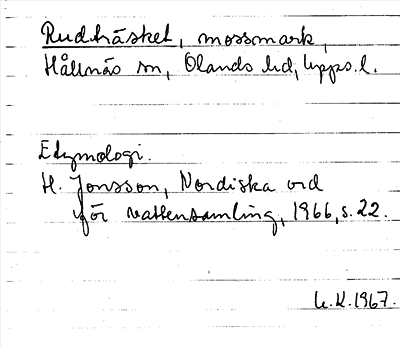 Rudträsket, mossmark,
Hållnäs sn, Olands hd, Upps. l.
Etymologi.
H. Jonsson, Nordiska ord
för vattensamling, 1966, s. 22.
U.K. 1967.